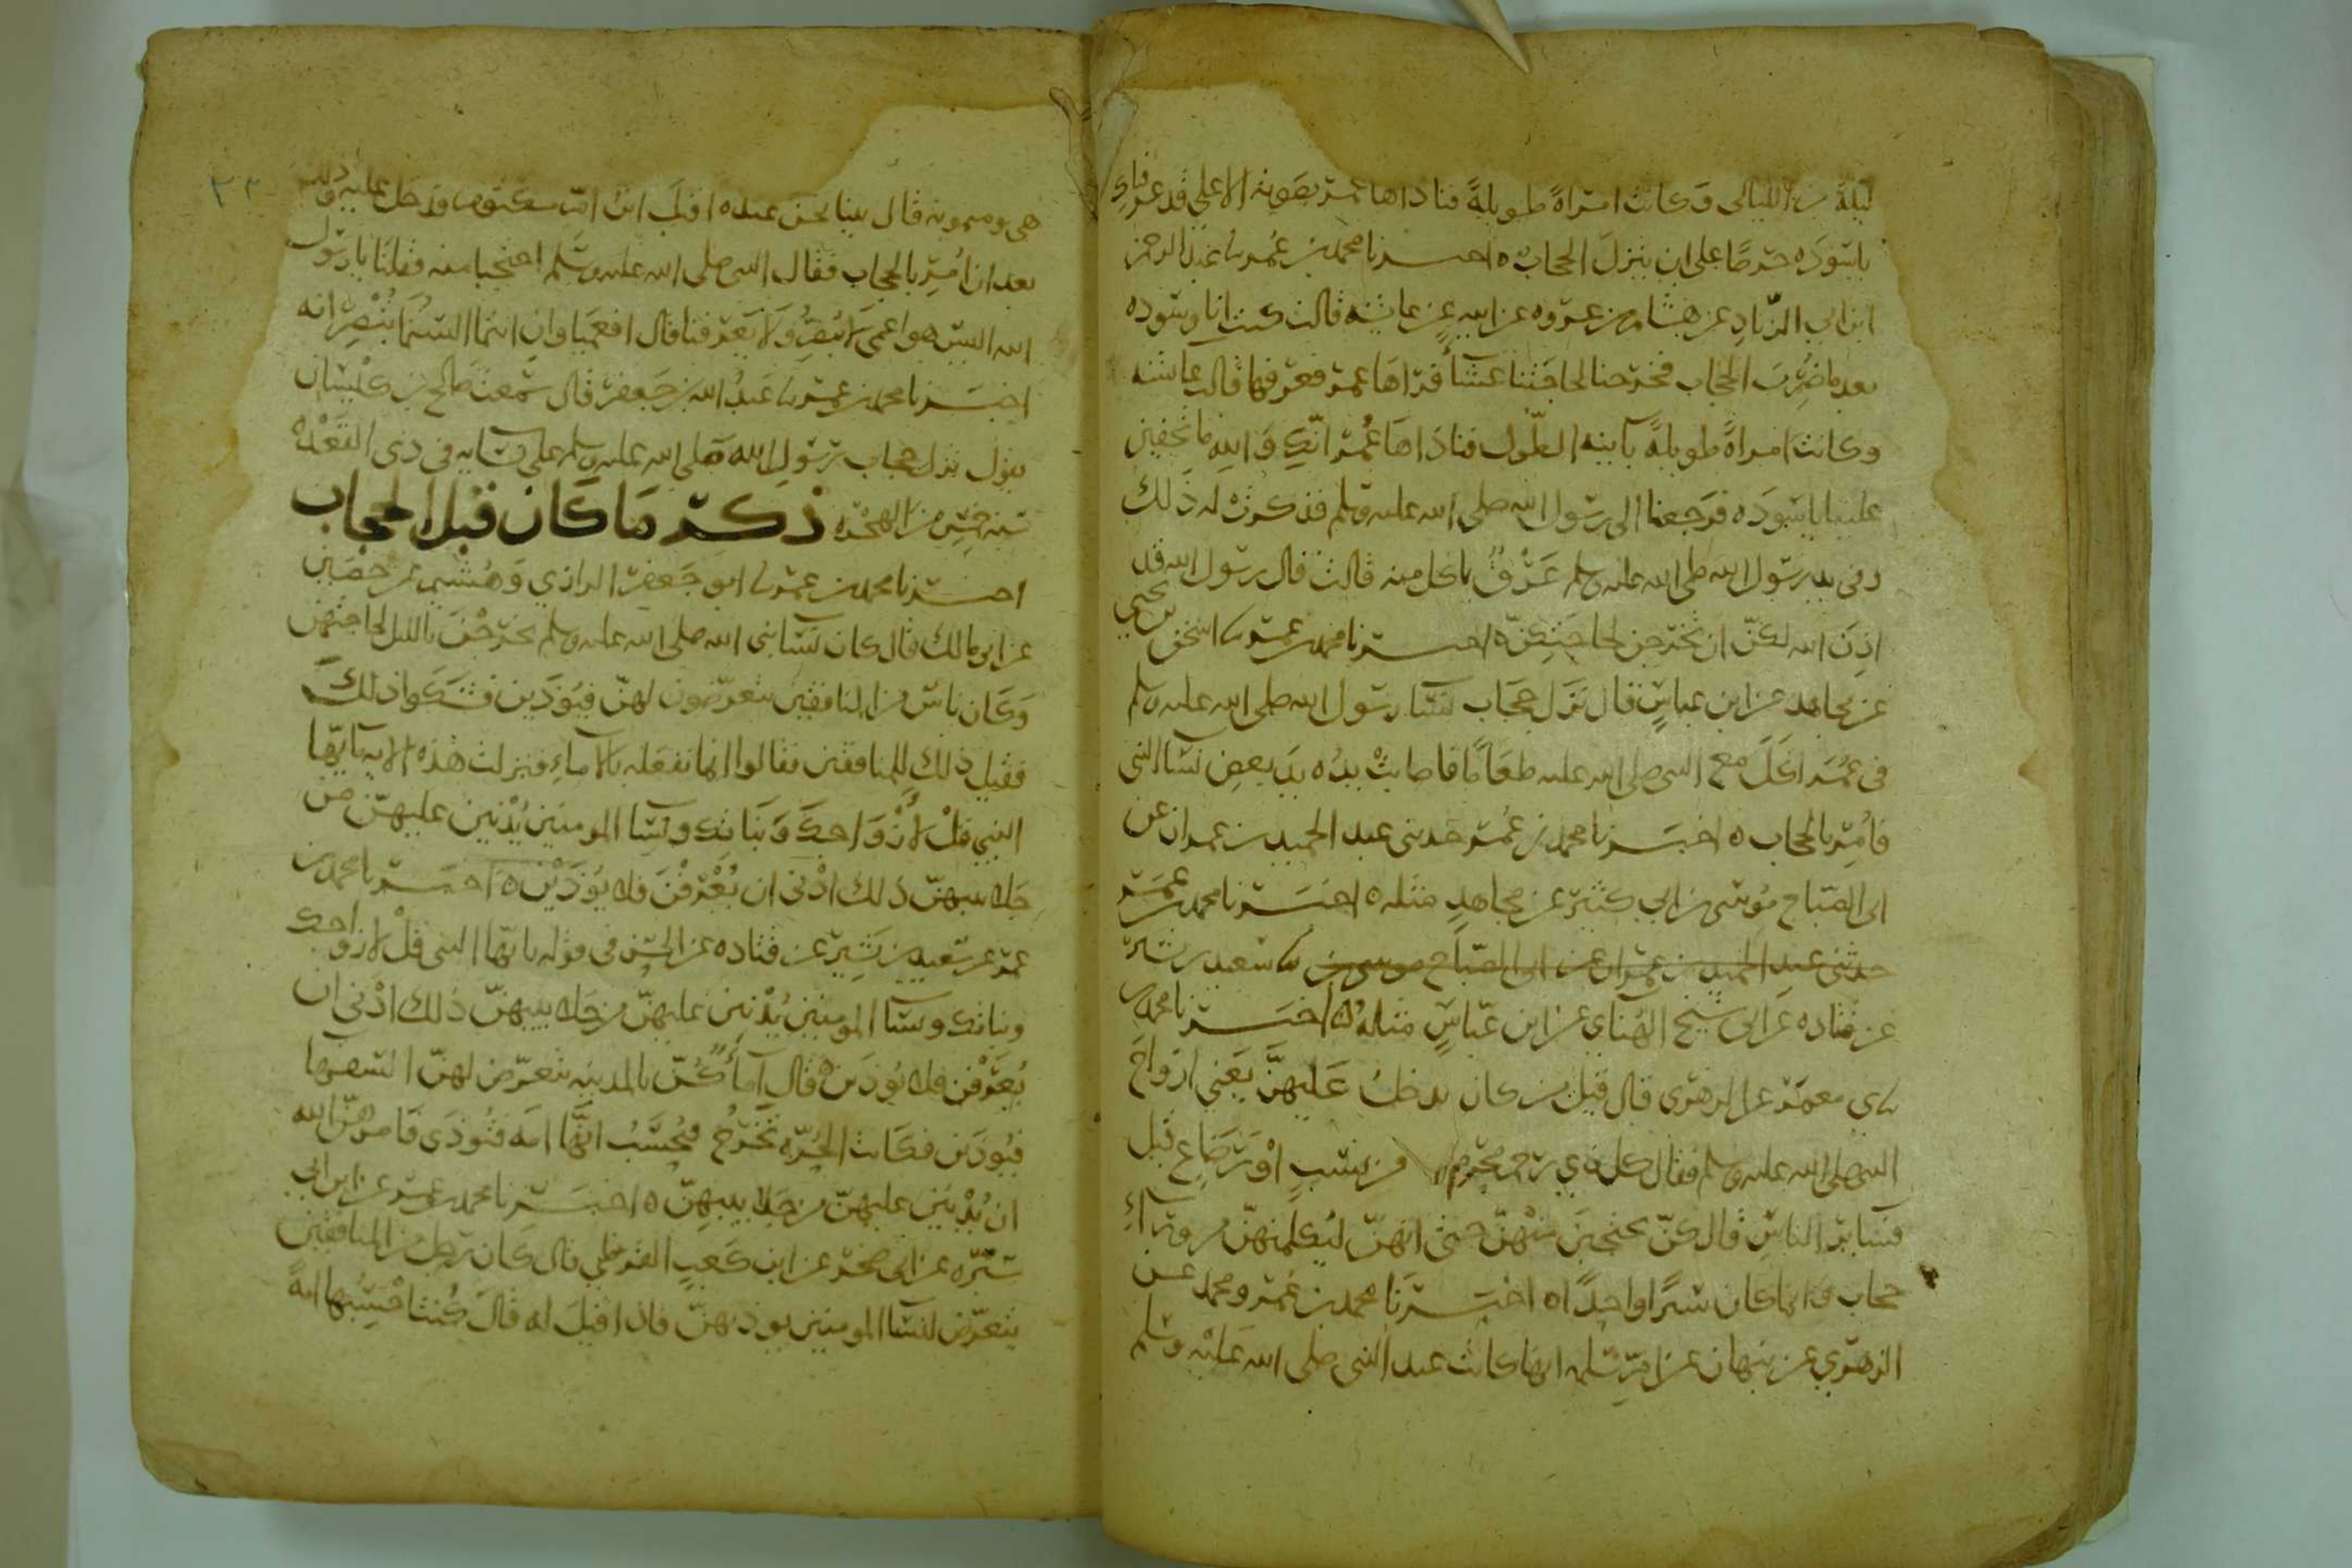 ليلة من الليالي وكانت امراة طويلة فناداها عمر بصوته الاعلى قد عرفناكِ
يا سوده حرصًا على ان ينزل الحجاب ه اخبرنا محمد بن عمر نا عبد الرحمن
ابن ابي الزناد عن هشام بن عروه عن ابيه عن عائشه قالت كنت انا وسوده
بعد ما ضُرِب الحجاب فخرجنا لحاجتنا عشآءً فراها عمر فعرفها قالت عائشه
وكانت امراةً طويلةً بآينه الطول فناداها عُمر انّكِ والله ما تخفين
علينا يا سَودَه فرجعنا الى رسول الله صلى الله عليه وسلم فذكرت له ذلك
وفي يد رسول الله صلى الله عليه وسلم عَرْقٌ ياكل منه قالت فقال رسول الله قد
اذِنَ الله لكنّ ان تخرجن لحاجتكنّ ه اخبرنا محمد بن عمر نا اسحق بن يحيى
عن مجاهد عن ابن عباسٍ قال نزل حجاب نسا رسول الله صلى الله عليه وسلم
في عُمَر اكَلَ مع النبي صلى الله عليه طعامًا فاصابت يدُه يدَ بعض نسا النبي
فاُمِر بالحجاب ه اخبرنا محمد بن عُمر حدثني عبد الحميد بن عمران عن
ابي الصبّاح موسى بن ابي كثير عن مجاهدٍ مثله ه اخبرنا محمد بن عمر
حدثني عبد الحميد بن عمران عن ابي الصبّاح موسى بن نا سعيد بن بشير
عن قتاده عن ابي شيخ الهُنايي عن ابن عبّاسٍ مثلهُ ه اخبرنا محمد بن
معمَر عن الزهري قال قيل من كان يدخلُ عَليهنَّ يَعني ازوَاجَ
النبي صلى الله عليه وسلم فقال كل ذي رحمٍ محرمٍ من نسبٍ اوْ رَضَاع قيل
فسَاير الناسِ قال كنّ يحتجبنَ منهنّ حتى انهنّ ليُكلمنهنّ من ورآءِ
حجاب وَانما كان سترًا واحدًا ه اخبرنا محمد بن عُمر ومحمد عن
الزهري عن نبهان عن ام سلمه انها كانت عند النبي صلى الله عليه وسلم
هي وميمونه قال بينا نحن عنده اقبل ابن ام مكتوم فدخل عليه وذلك
بعد ان اُمِر بالحجاب فقال النبي صلى الله عليه وسلم احتجبا منه فقلنَا يا رسول
الله اليس هو اعمى لا يُبصِرُ ولا يَعرفنا قال افعَميَاوانِ انتما الستما تُبْصِرَانه
اخبرنا محمد بن عمر نا عبدُ الله بن جعفر قال سمعت صالح بن كَيْسَان
يقول نزل حجاب رسول الله صلى الله عليه وسلم على نسَايه في ذي القَعْدة
سنه خمسٍ من الهجره ذكر ما كان قبل الحجاب
اخبرنا محمد بن عمر نا ابو جعفر الرازي وهُشيم عن حصَين
عن ابي مالك قال كان نسَا نبي الله صلى الله عليه وسلم يخرُجْنَ بالليل لحاجتهن
وكَان ناسٌ من المنافقين يتعرّضون لهنّ فيُؤذَين فشكَوا ذلك
فقيل ذلك للمنافقين فقالوا انما نفعَله بالاماءِ فنزلت هذه الايه يآ ايّها
النبي قلْ لازْوَاجكَ وبَنَاتك ونسَا المومنين يُدْنين عليهنّ من
جلابيبهنّ ذلك ادْنَى ان يُعْرَفْنَ فلا يُؤذَيْن ه اخبرنا محمد بن
عمر عن سَعيد بن بَشِيرٍ عن قتاده عن الحسن في قوله يا ايّها النبي قلْ لازواجك
وبناتك ونسَا المومنين يُدْنين عليهنّ من جلابيبهنّ ذلك ادْنى ان
يُعرَفْن فلا يُؤذَينْ قال آماءٌ كُنّ بالمدينه يتعرّض لهنّ السّفهاء
فيُوذَين فكَانت الحُرّه تخرُجُ فيُحسَبُ انّها امَه فتُوذَى فامرهُنّ الله
ان يُدْنينَ عليهنّ من جلابيبهنّ ه اخبرنا محمد بن عمر عن ابن ابي
سَبْرَه عن ابي صخر عن ابن كَعبٍ القرظي قال كان رجل من المنافقين
يتعرّض لنسَا المومنين يوذيهنّ فاذا قيلَ له قالَ كُنتُ احْسِبُها امةً